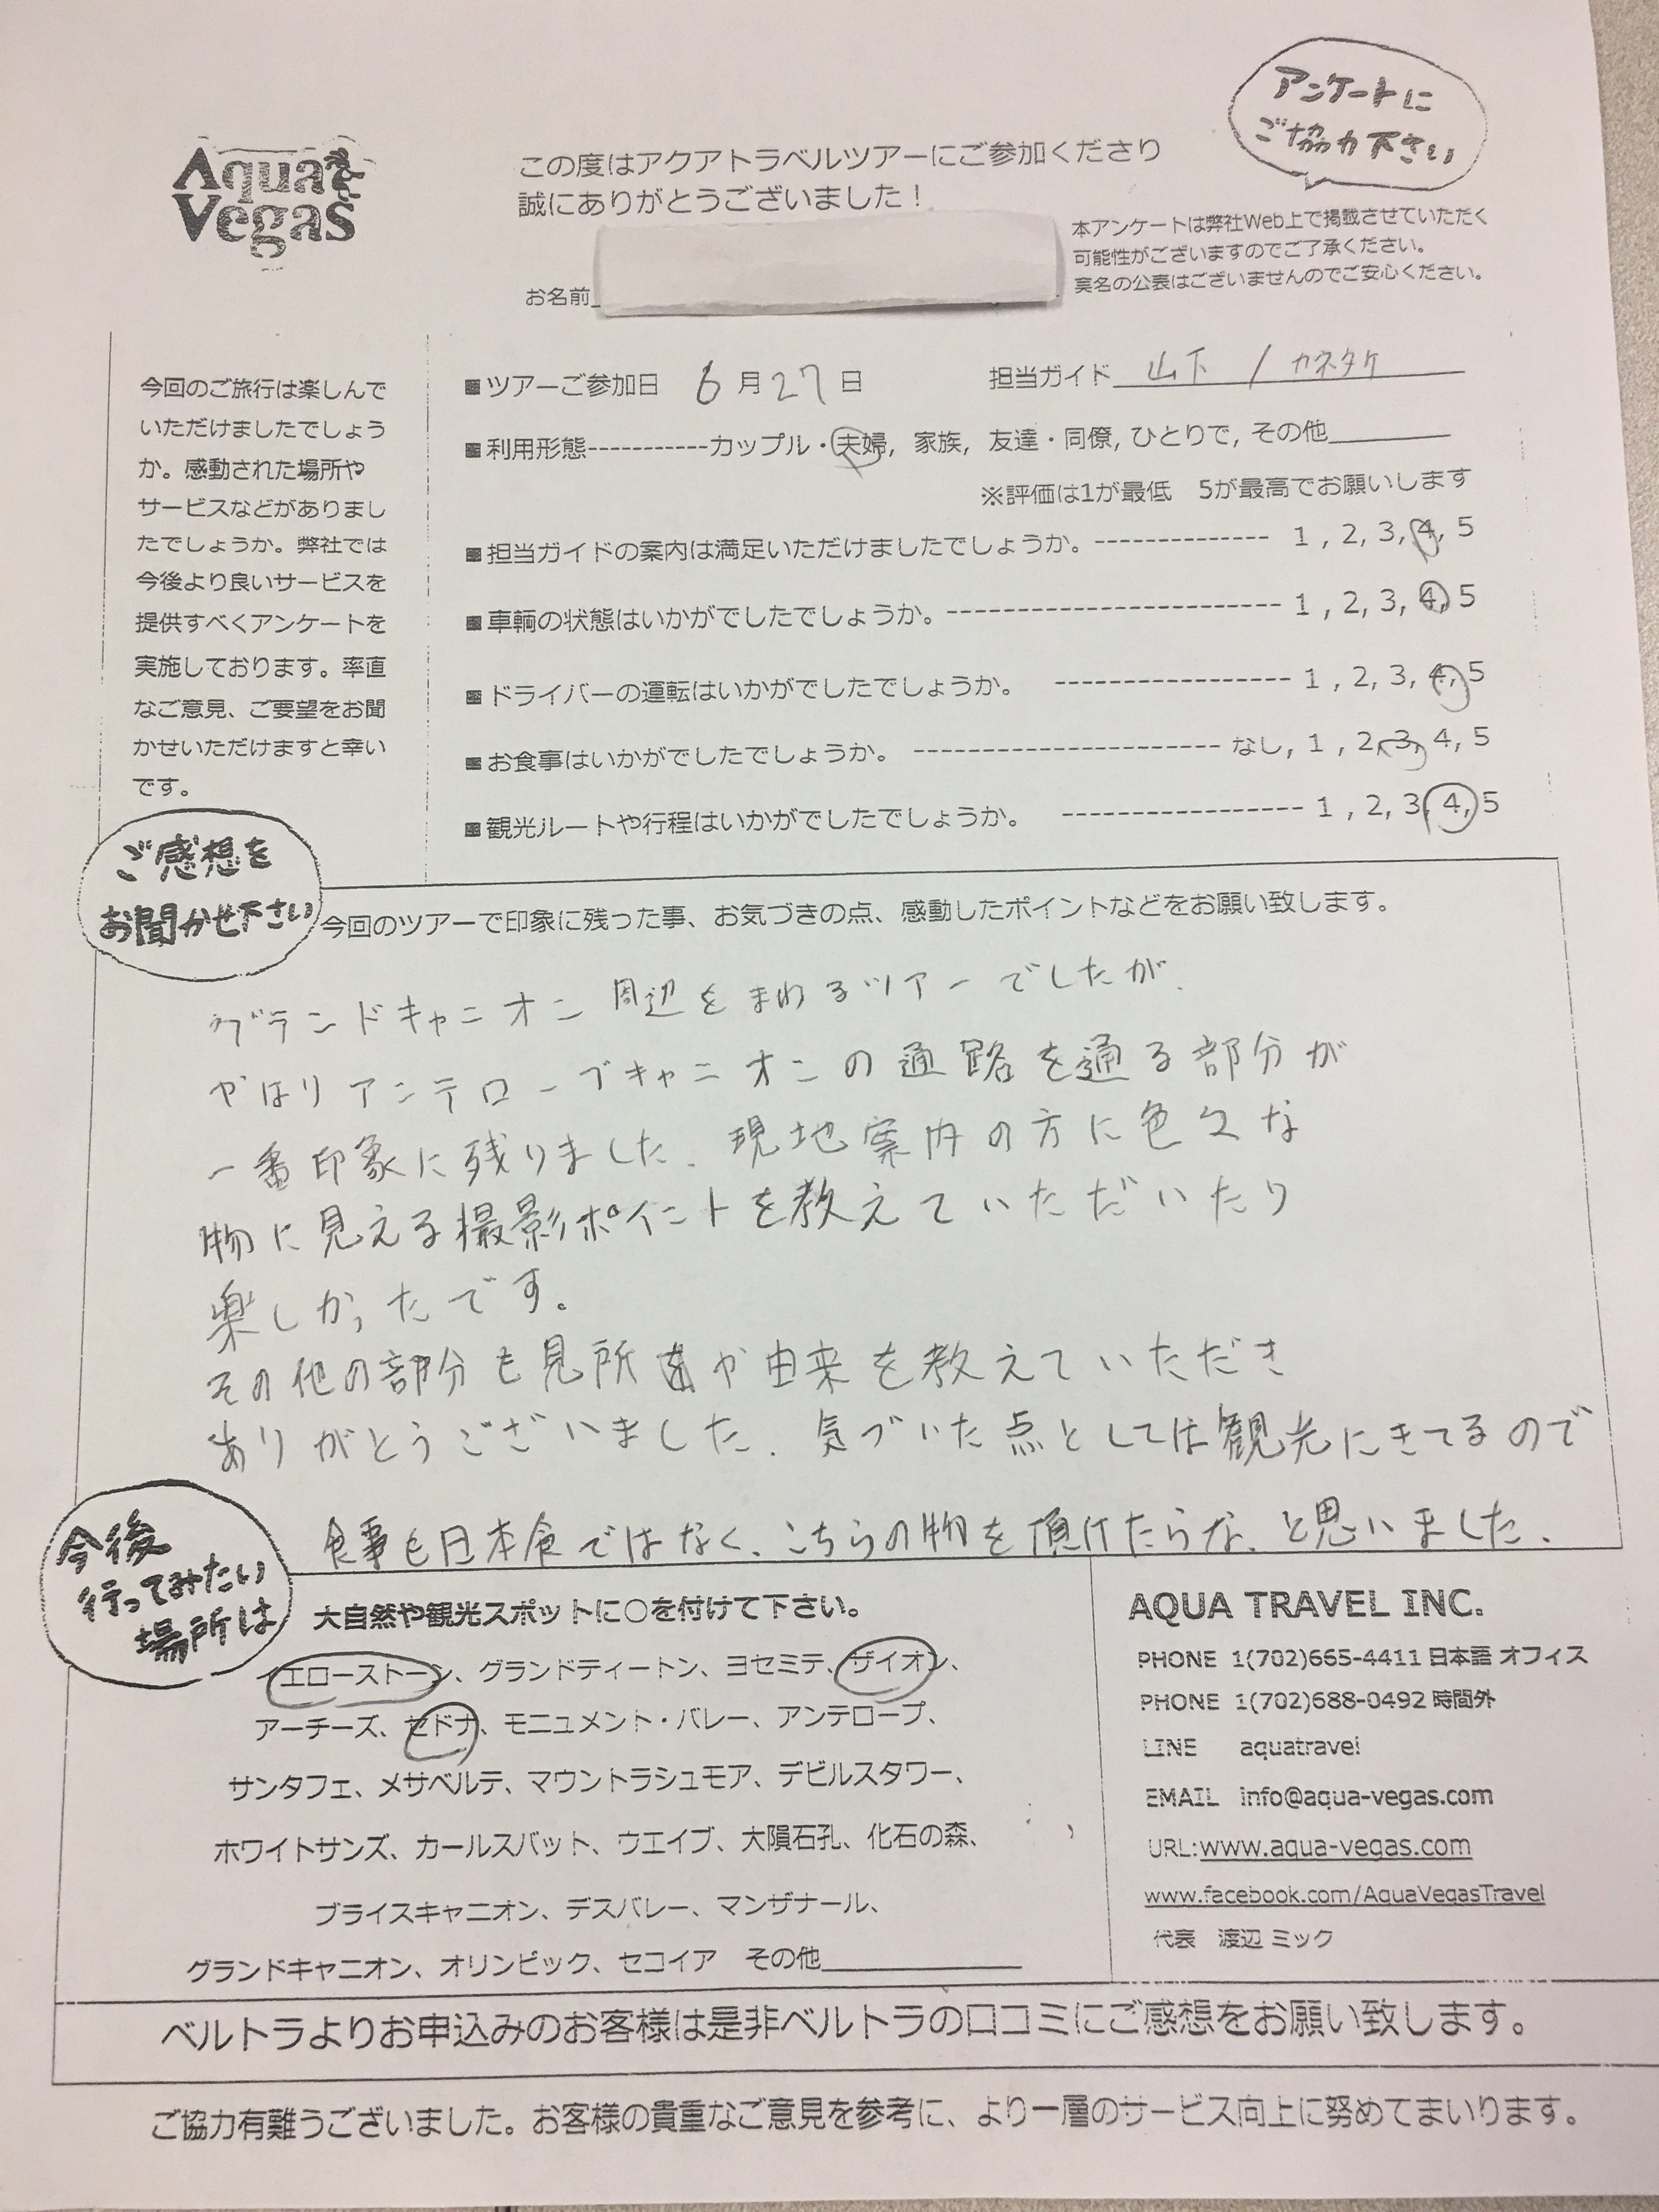 アンケートに
ご協力下さい
Aqua
Vegas
この度はアクアトラベルツアーにご参加くださり
誠にありがとうございました！
本アンケートは弊社Web上で掲載させていただく
可能性がございますのでご了承ください。
実名の公表はございませんのでご安心ください。
お名前
今回のご旅行は楽しんで
いただけましたでしょう
か。感動された場所や
サービスなどがありまし
たでしょうか。弊社では
今後より良いサービスを
提供すべくアンケートを
実施しております。率直
なご意見、ご要望をお聞
かせいただけますと幸い
です。
■ツアーご参加日 6月27日 担当ガイド 山下 / カネタケ
■利用形態-----------カップル・夫婦, 家族, 友達・同僚, ひとりで, その他
※評価は1が最低 5が最高でお願いします
■担当ガイドの案内は満足いただけましたでしょうか。------------- 1 , 2, 3, 4, 5
■車輌の状態はいかがでしたでしょうか。------------------------- 1 , 2, 3, 4, 5
■ドライバーの運転はいかがでしたでしょうか。 ----------------- 1 , 2, 3, 4, 5
■お食事はいかがでしたでしょうか。 ----------------------- なし, 1 , 2, 3, 4, 5
■観光ルートや行程はいかがでしたでしょうか。 ------------------ 1 , 2, 3, 4, 5
ご感想を
お聞かせ下さい
今回のツアーで印象に残った事、お気づきの点、感動したポイントなどをお願い致します。
グランドキャニオン周辺をまわるツアーでしたが、
やはりアンテロープキャニオンの通路を通る部分が
一番印象に残りました。現地案内の方に色々な
物に見える撮影ポイントを教えていただいたり
楽しかったです。
その他の部分も見所や由来を教えていただき
ありがとうございました。気づいた点としては観光にきてるので
食事も日本食ではなく、こちらの物を頂けたらな、と思いました。
今後
行ってみたい
場所は
大自然や観光スポットに○を付けて下さい。
イエローストーン、グランドティートン、ヨセミテ、ザイオン、
アーチーズ、セドナ、モニュメント・バレー、アンテロープ、
サンタフェ、メサベルテ、マウントラシュモア、デビルスタワー、
ホワイトサンズ、カールスバット、ウエイブ、大隕石孔、化石の森、
ブライスキャニオン、デスバレー、マンザナール、
グランドキャニオン、オリンピック、セコイア その他
AQUA TRAVEL INC.
PHONE 1(702)665-4411 日本語 オフィス
PHONE 1(702)688-0492 時間外
LINE aquatravel
EMAIL info@aqua-vegas.com
URL:www.aqua-vegas.com
www.facebook.com/AquaVegasTravel
代表 渡辺 ミック
ベルトラよりお申込みのお客様は是非ベルトラの口コミにご感想をお願い致します。
ご協力有難うございました。お客様の貴重なご意見を参考に、より一層のサービス向上に努めてまいります。